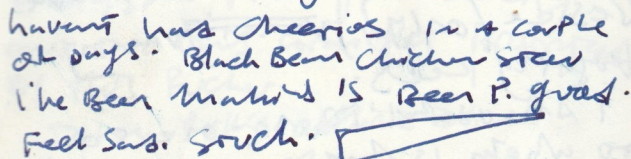 havent had cheerios in a couple
of days. Black Bean Chicken Stew
I've Been making is Been P. good.
Feel Sad. Stuck.